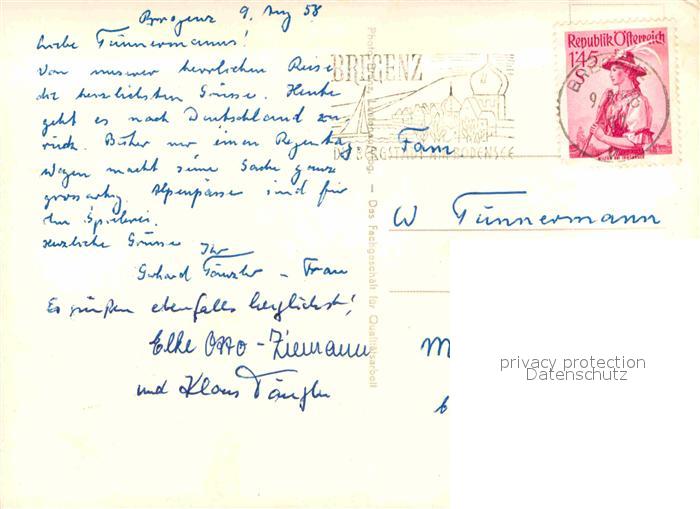 Bregenz 9. Aug 58
Liebe Tünnermanns!
Von unserer herrlichen Reise
die herzlichsten Grüsse. Heute
geht es nach Deutschland zu-
rück. Bisher nur einen Regentag
Wagen macht seine Sache ganz
grossartig. Alpenpässe sind für
ihn Spielerei.
Herzliche Grüsse Ihr
Gerhard Tänzler - Frau
Es grüßen ebenfalls herzlichst!
Elke Otto-Ziemann
und Klaus Tänzler
Das Fachgeschäft für Qualitätsarbeit
BREGENZ
Republik Österreich
1.45
Fam
W Tünnermann
M
privacy protection
Datenschutz